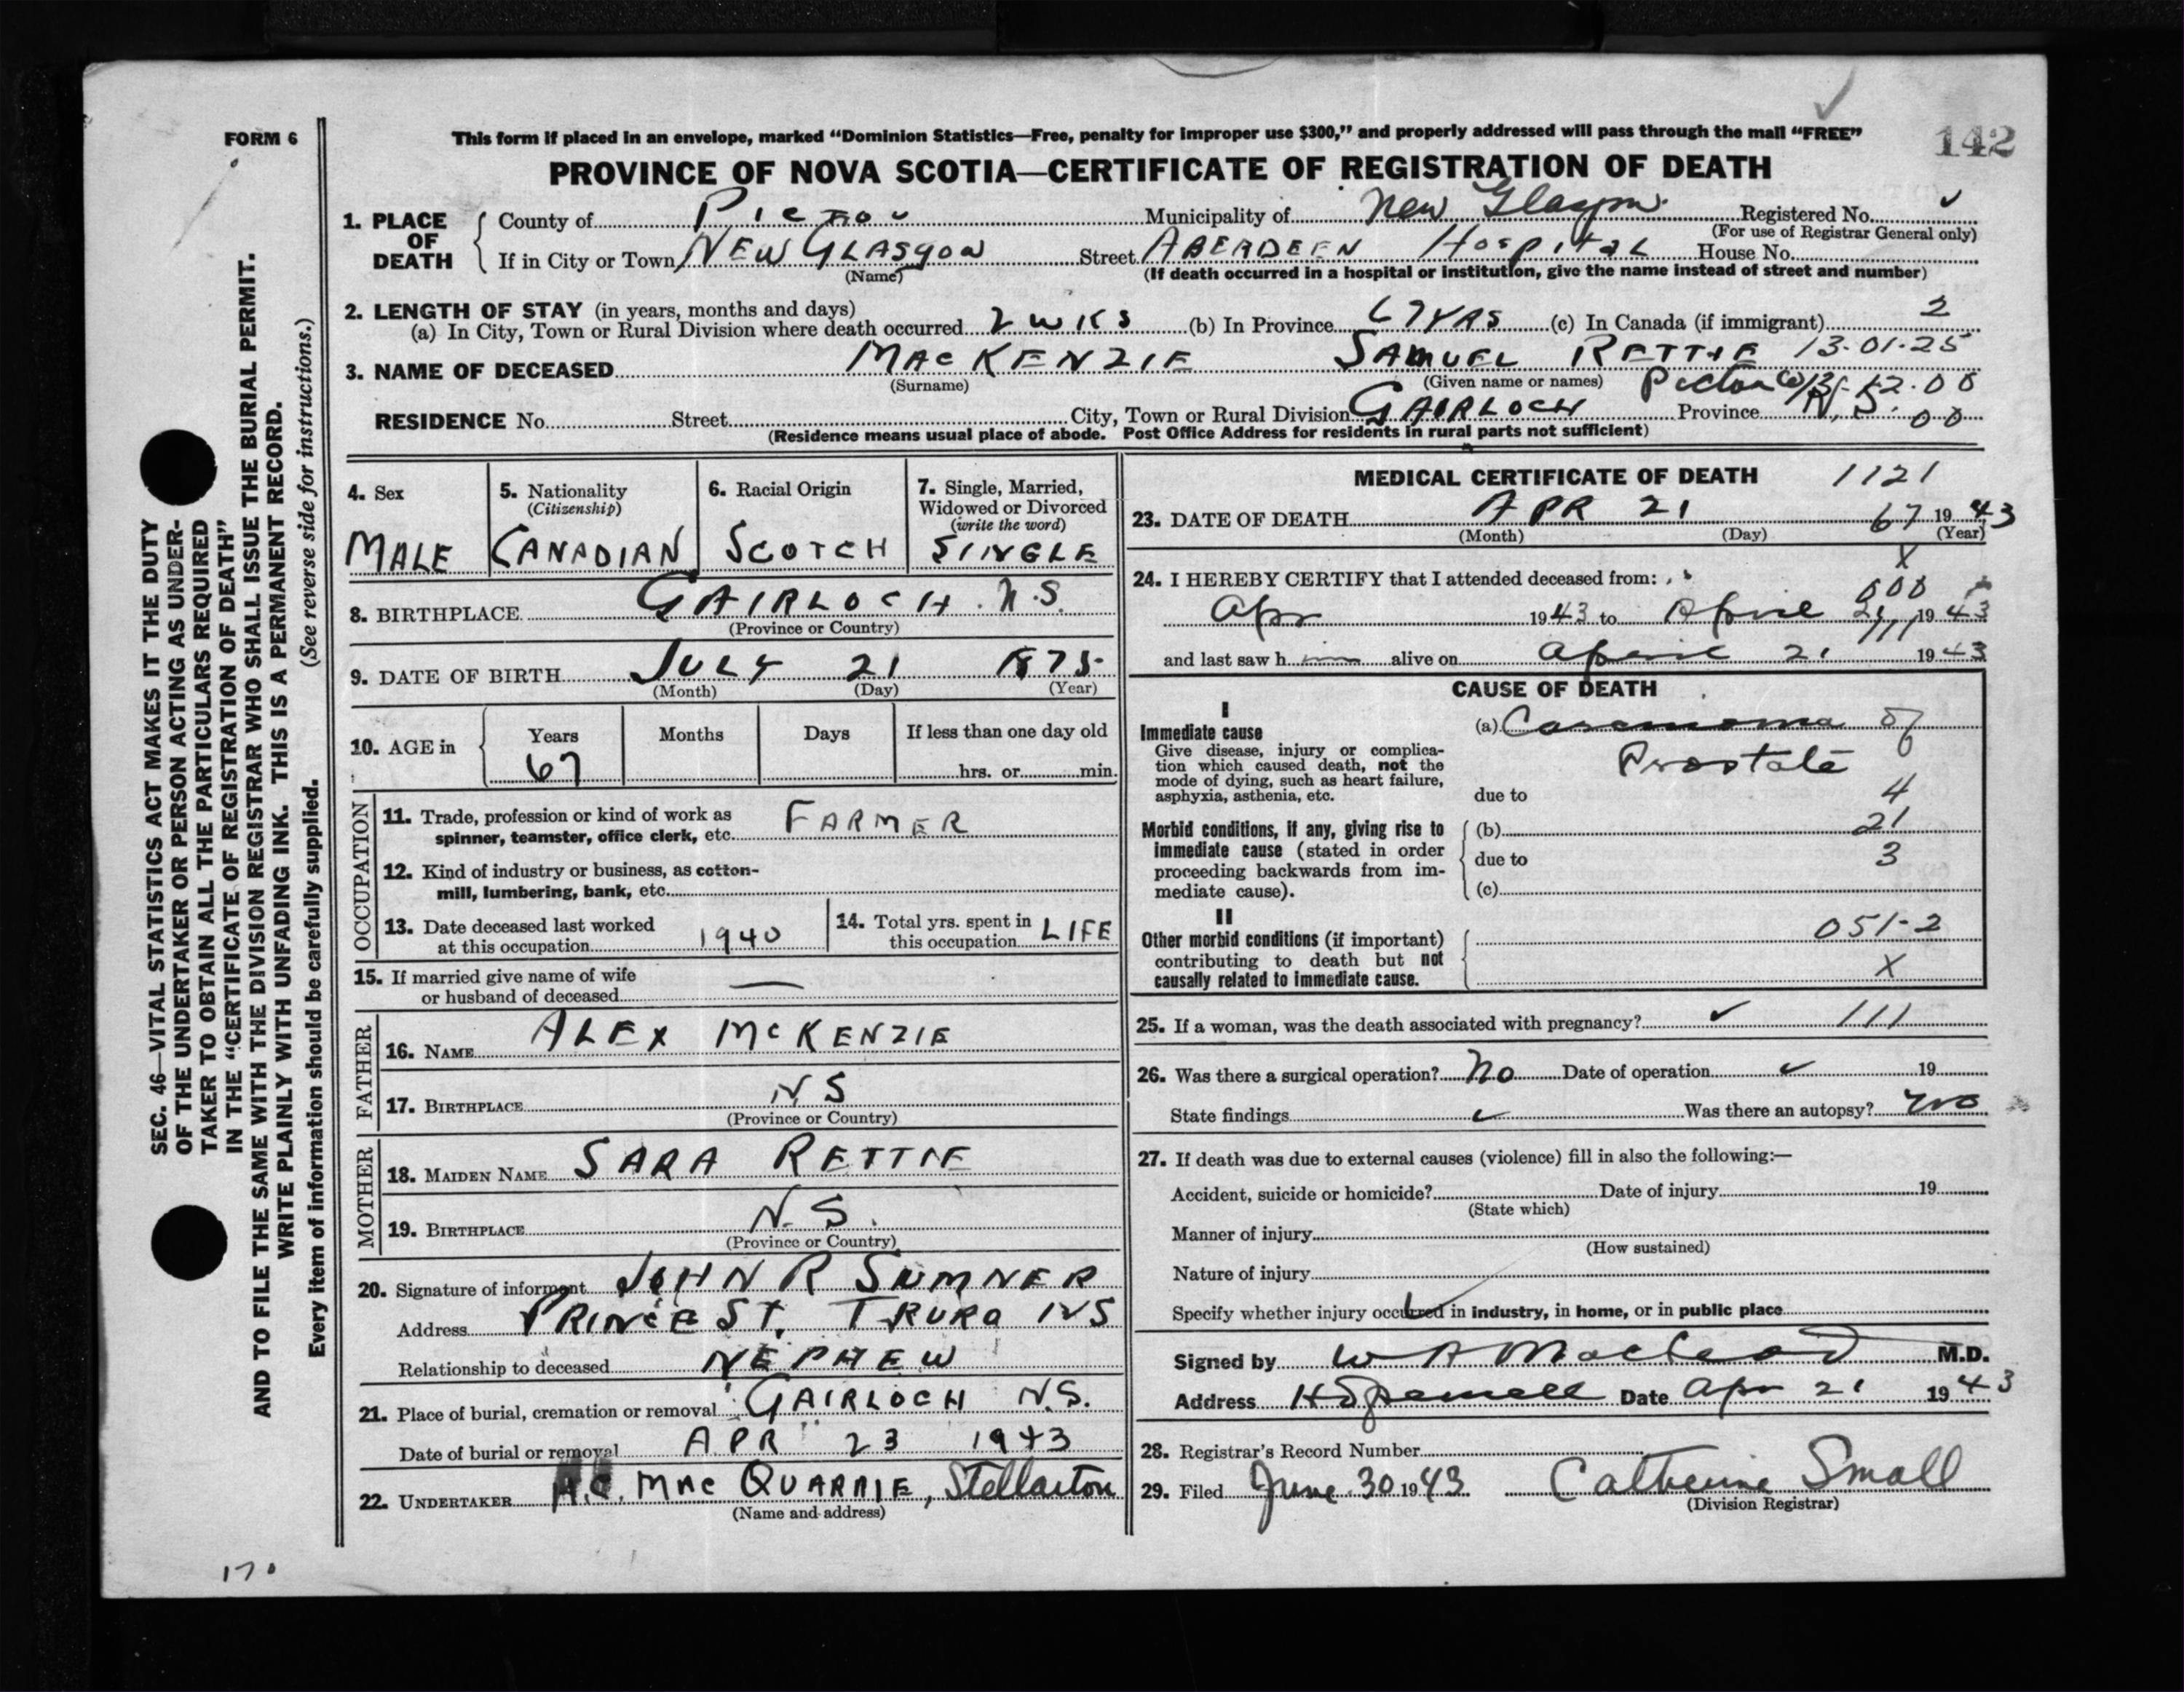 FORM 6
This form if placed in an envelope, marked "Dominion Statistics—Free, penalty for improper use $300," and properly addressed will pass through the mail "FREE"
142
PROVINCE OF NOVA SCOTIA—CERTIFICATE OF REGISTRATION OF DEATH
1. PLACE OF DEATH
County of Pictou Municipality of New Glasgow Registered No.
(For use of Registrar General only)
If in City or Town NEW GLASGOW Street ABERDEEN HOSPITAL House No.
(Name) (If death occurred in a hospital or institution, give the name instead of street and number)
2. LENGTH OF STAY (in years, months and days)
(a) In City, Town or Rural Division where death occurred 2 WKS (b) In Province 67 YRS (c) In Canada (if immigrant) 2
3. NAME OF DECEASED MACKENZIE SAMUEL RETTIE 13-01-25
(Surname) (Given name or names) Pictou Co
RESIDENCE No. Street City, Town or Rural Division GAIRLOCH Province N.S. 00
(Residence means usual place of abode. Post Office Address for residents in rural parts not sufficient)
SEC. 46—VITAL STATISTICS ACT MAKES IT THE DUTY
OF THE UNDERTAKER OR PERSON ACTING AS UNDER-
TAKER TO OBTAIN ALL THE PARTICULARS REQUIRED
IN THE "CERTIFICATE OF REGISTRATION OF DEATH"
AND TO FILE THE SAME WITH THE DIVISION REGISTRAR WHO SHALL ISSUE THE BURIAL PERMIT.
WRITE PLAINLY WITH UNFADING INK. THIS IS A PERMANENT RECORD.
Every item of information should be carefully supplied. (See reverse side for instructions.)
4. Sex
MALE
5. Nationality
(Citizenship)
CANADIAN
6. Racial Origin
SCOTCH
7. Single, Married,
Widowed or Divorced
(write the word)
SINGLE
8. BIRTHPLACE GAIRLOCH. N.S.
(Province or Country)
9. DATE OF BIRTH JULY 21 1875
(Month) (Day) (Year)
10. AGE in Years Months Days If less than one day old
67 hrs. or min.
OCCUPATION
11. Trade, profession or kind of work as
spinner, teamster, office clerk, etc. FARMER
12. Kind of industry or business, as cotton-
mill, lumbering, bank, etc.
13. Date deceased last worked
at this occupation 1940
14. Total yrs. spent in
this occupation LIFE
15. If married give name of wife
or husband of deceased —
FATHER
16. NAME ALEX McKENZIE
17. BIRTHPLACE N.S
(Province or Country)
MOTHER
18. MAIDEN NAME SARA RETTIE
19. BIRTHPLACE N.S.
(Province or Country)
20. Signature of informant JOHN R SUMNER
Address PRINCE ST. TRURO NS
Relationship to deceased NEPHEW
21. Place of burial, cremation or removal GAIRLOCH N.S.
Date of burial or removal APR 23 1943
22. UNDERTAKER A.C. MAC QUARRIE, Stellarton
(Name and address)
MEDICAL CERTIFICATE OF DEATH 1121
23. DATE OF DEATH APR 21 67 1943
(Month) (Day) (Year)
X
24. I HEREBY CERTIFY that I attended deceased from:
000
Apr 1943 to April 21, 1943
111
and last saw h im alive on April 21 1943
CAUSE OF DEATH
I
Immediate cause
Give disease, injury or complica-
tion which caused death, not the
mode of dying, such as heart failure,
asphyxia, asthenia, etc.
(a) Carcinoma of
Prostate
due to 4
Morbid conditions, if any, giving rise to
immediate cause (stated in order
proceeding backwards from im-
mediate cause).
(b) 21
due to 3
(c)
II
Other morbid conditions (if important)
contributing to death but not
causally related to immediate cause.
051-2
X
25. If a woman, was the death associated with pregnancy? 111
26. Was there a surgical operation? No Date of operation 19
State findings Was there an autopsy? no
27. If death was due to external causes (violence) fill in also the following:—
Accident, suicide or homicide? Date of injury 19
(State which)
Manner of injury
(How sustained)
Nature of injury
Specify whether injury occurred in industry, in home, or in public place
Signed by W A MacLeod M.D.
Address Date Apr 21 1943
28. Registrar's Record Number
29. Filed June 30 1943 Catherine Small
(Division Registrar)
170